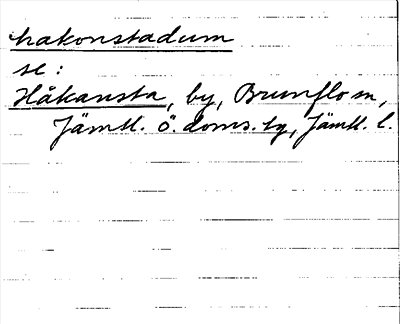 hakonstadum
se:
Håkansta, by, Brunflo sn,
Jämtl. ö. doms. tg, Jämtl. l.